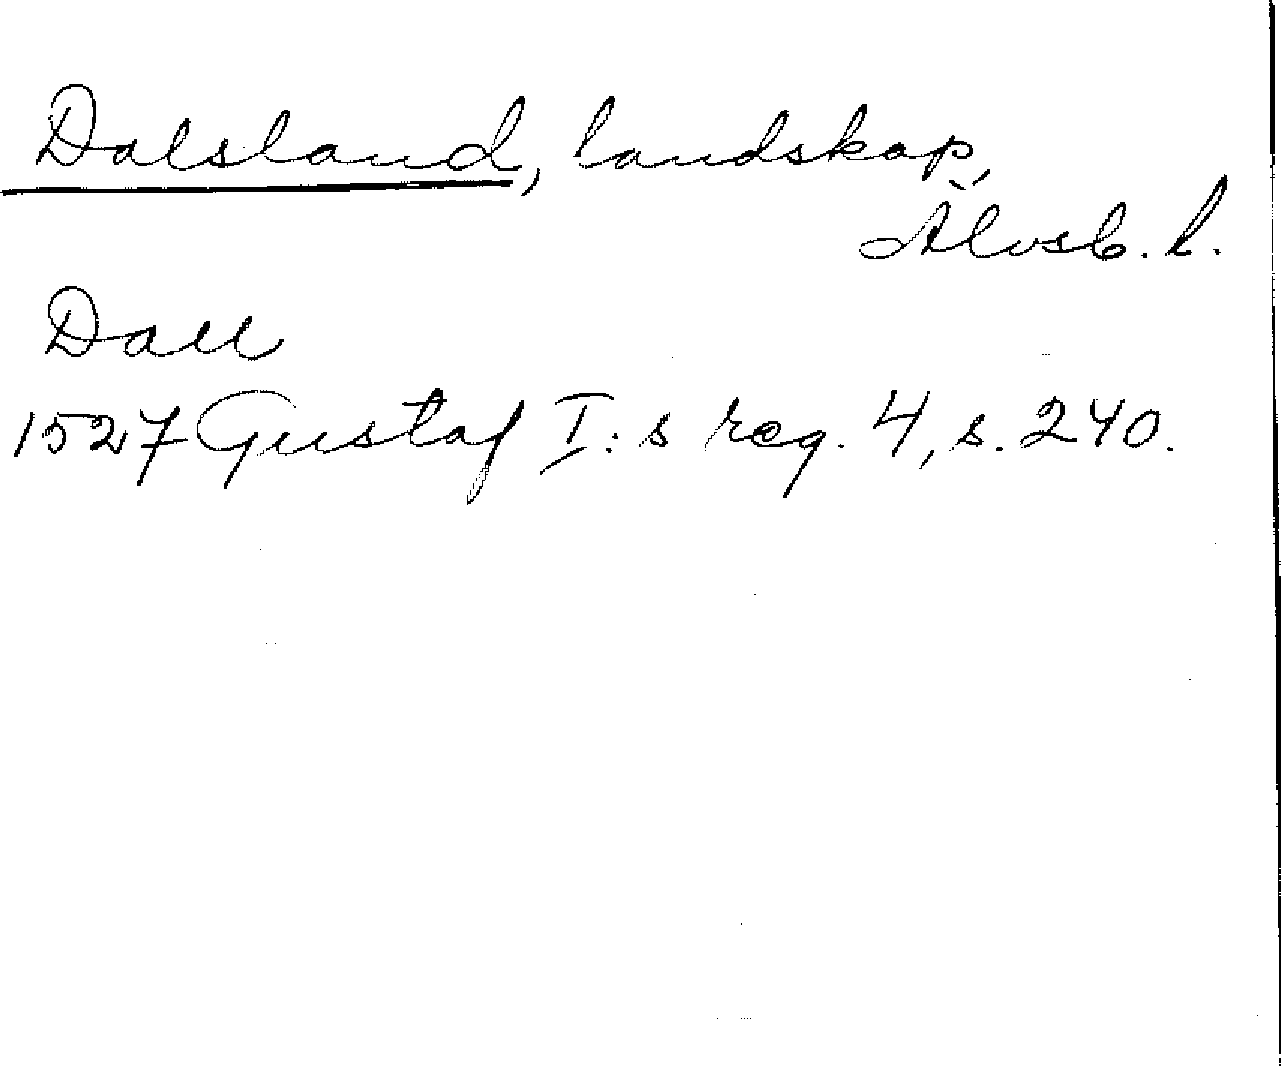 Dalsland, landskap,
Älvsb. l.
Dall
1527 Gustaf I:s reg. 4, s. 240.